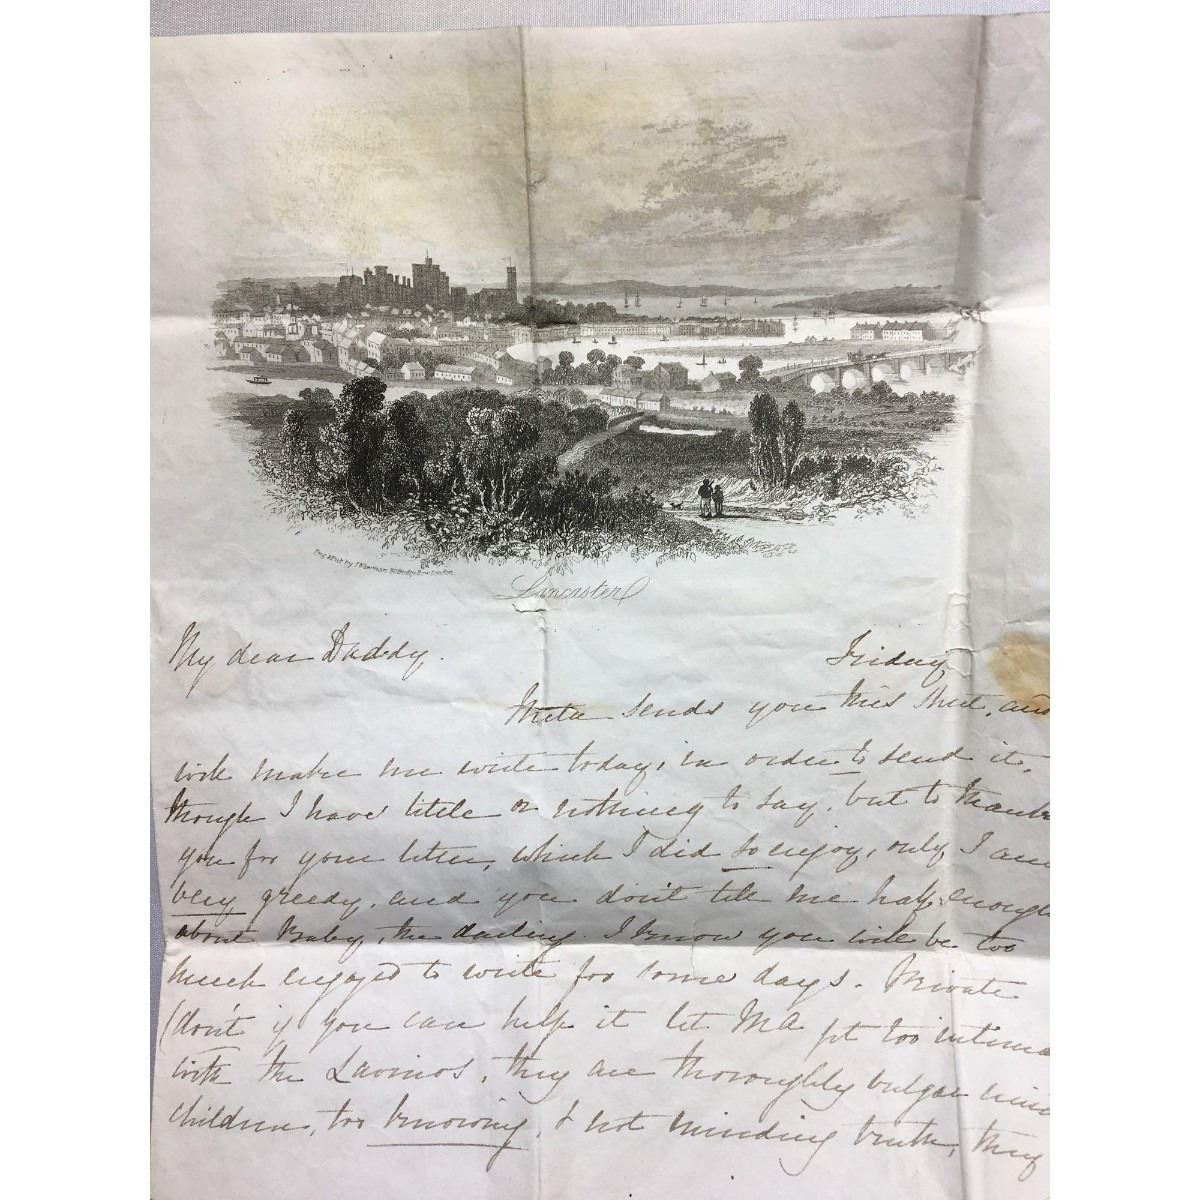 Eng. & Pub. by J. Newman 48 Watling St. London
Lancaster
My dear Daddy.
Friday
Meta sends you this sheet, and
will make me write today, in order to send it,
though I have little or nothing to say, but to thank
you for your letter, which I did so enjoy, only I am
very greedy, and you don't tell me half enough
about Baby, the darling. I know you will be too
much engaged to write for some days. Private
(don't if you can help it let MA get too intima
with the Lavinos, they are thoroughly vulgar mind
children, too knowing, & not minding truth, they